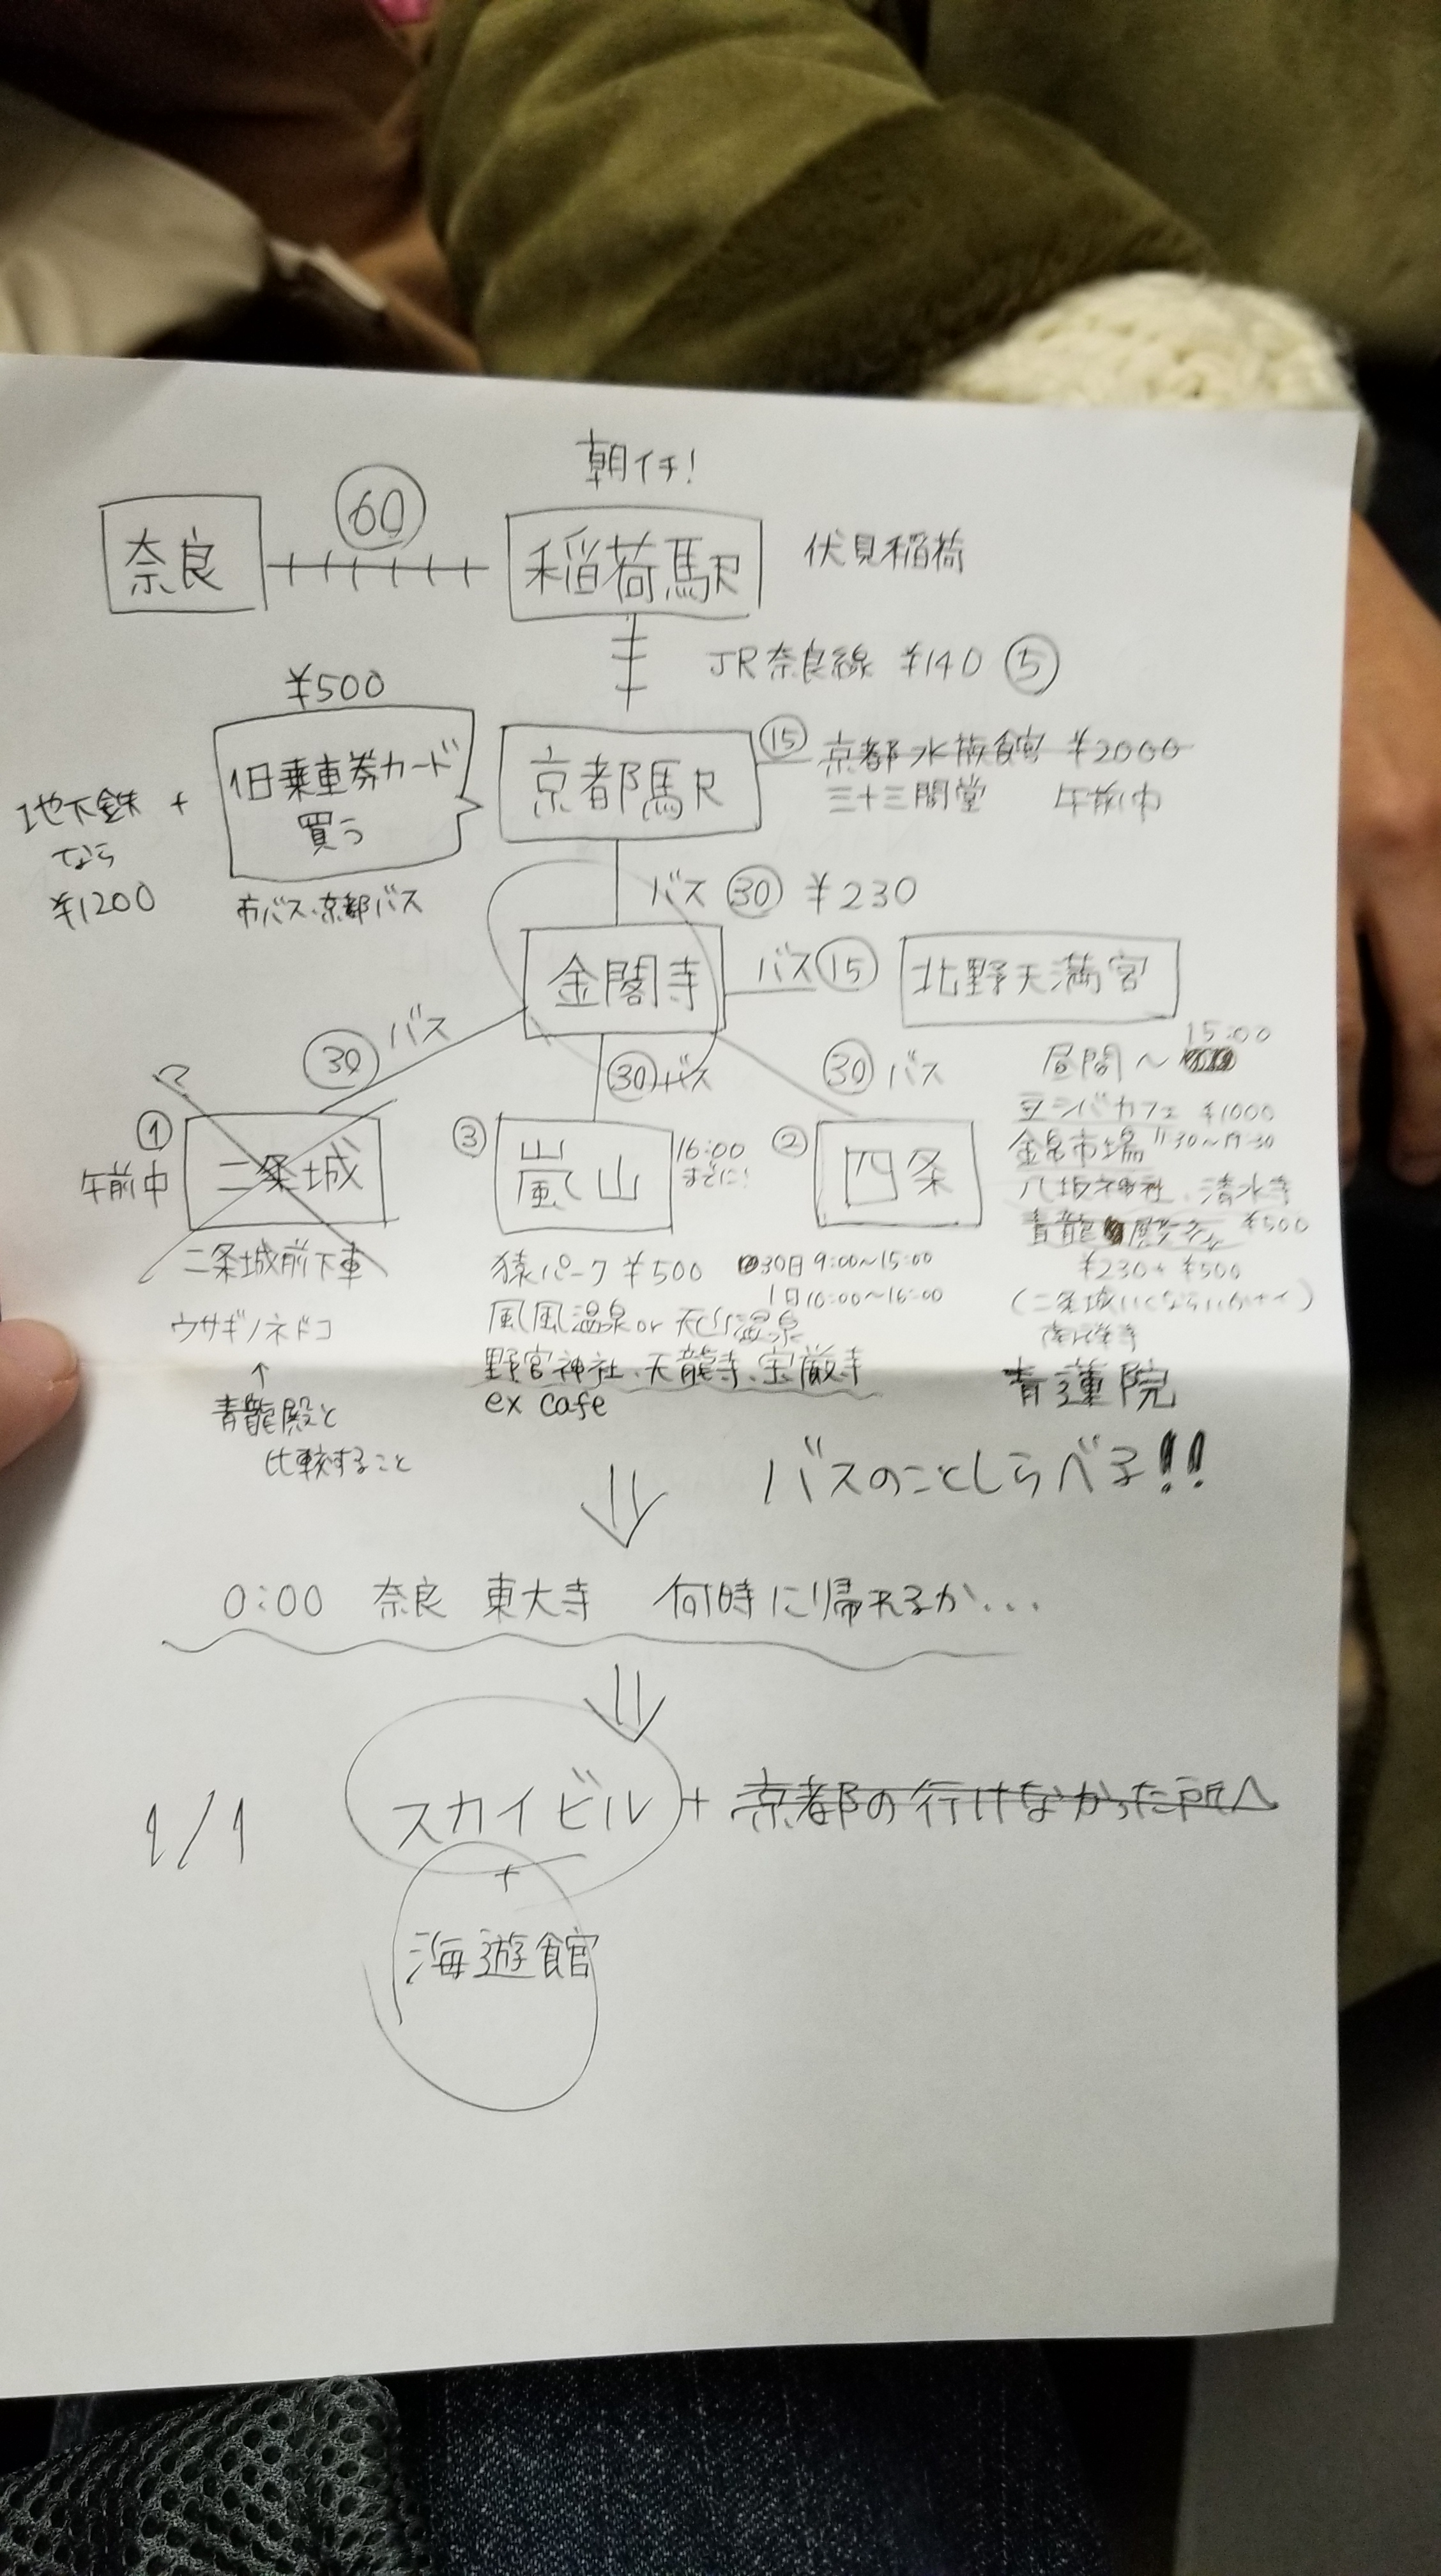 朝イチ!
奈良 60 稲荷駅 伏見稲荷
JR奈良線 ¥140 ⑤
¥500
1日乗車券カード
買う
地下鉄 +
なら
¥1200
市バス、京都バス
京都駅 ⑮ 京都水族館 ¥2000
三十三間堂 午前中
バス ㉚ ¥230
金閣寺 バス ⑮ 北野天満宮
㉚ バス
㉚ バス
㉚ バス
?
① 午前中 二条城
二条城前下車
ウサギノネドコ
↑
青龍殿と
比較すること
③ 嵐山 16:00
までに!
猿パーク ¥500
風風温泉 or 天山温泉
野宮神社、天龍寺、宝厳寺
ex cafe
② 四条
30日 9:00~15:00
1日 10:00~16:00
15:00
昼間~
豆シバカフェ ¥1000
11:30~19:30
八坂神社、清水寺
青龍殿 ¥500
¥230+¥500
青蓮院
バスのことしらべる!!
⇓
0:00 奈良 東大寺 何時に帰れるか...
⇓
1/1 スカイビル + 京都の行けなかった所へ
+
海遊館